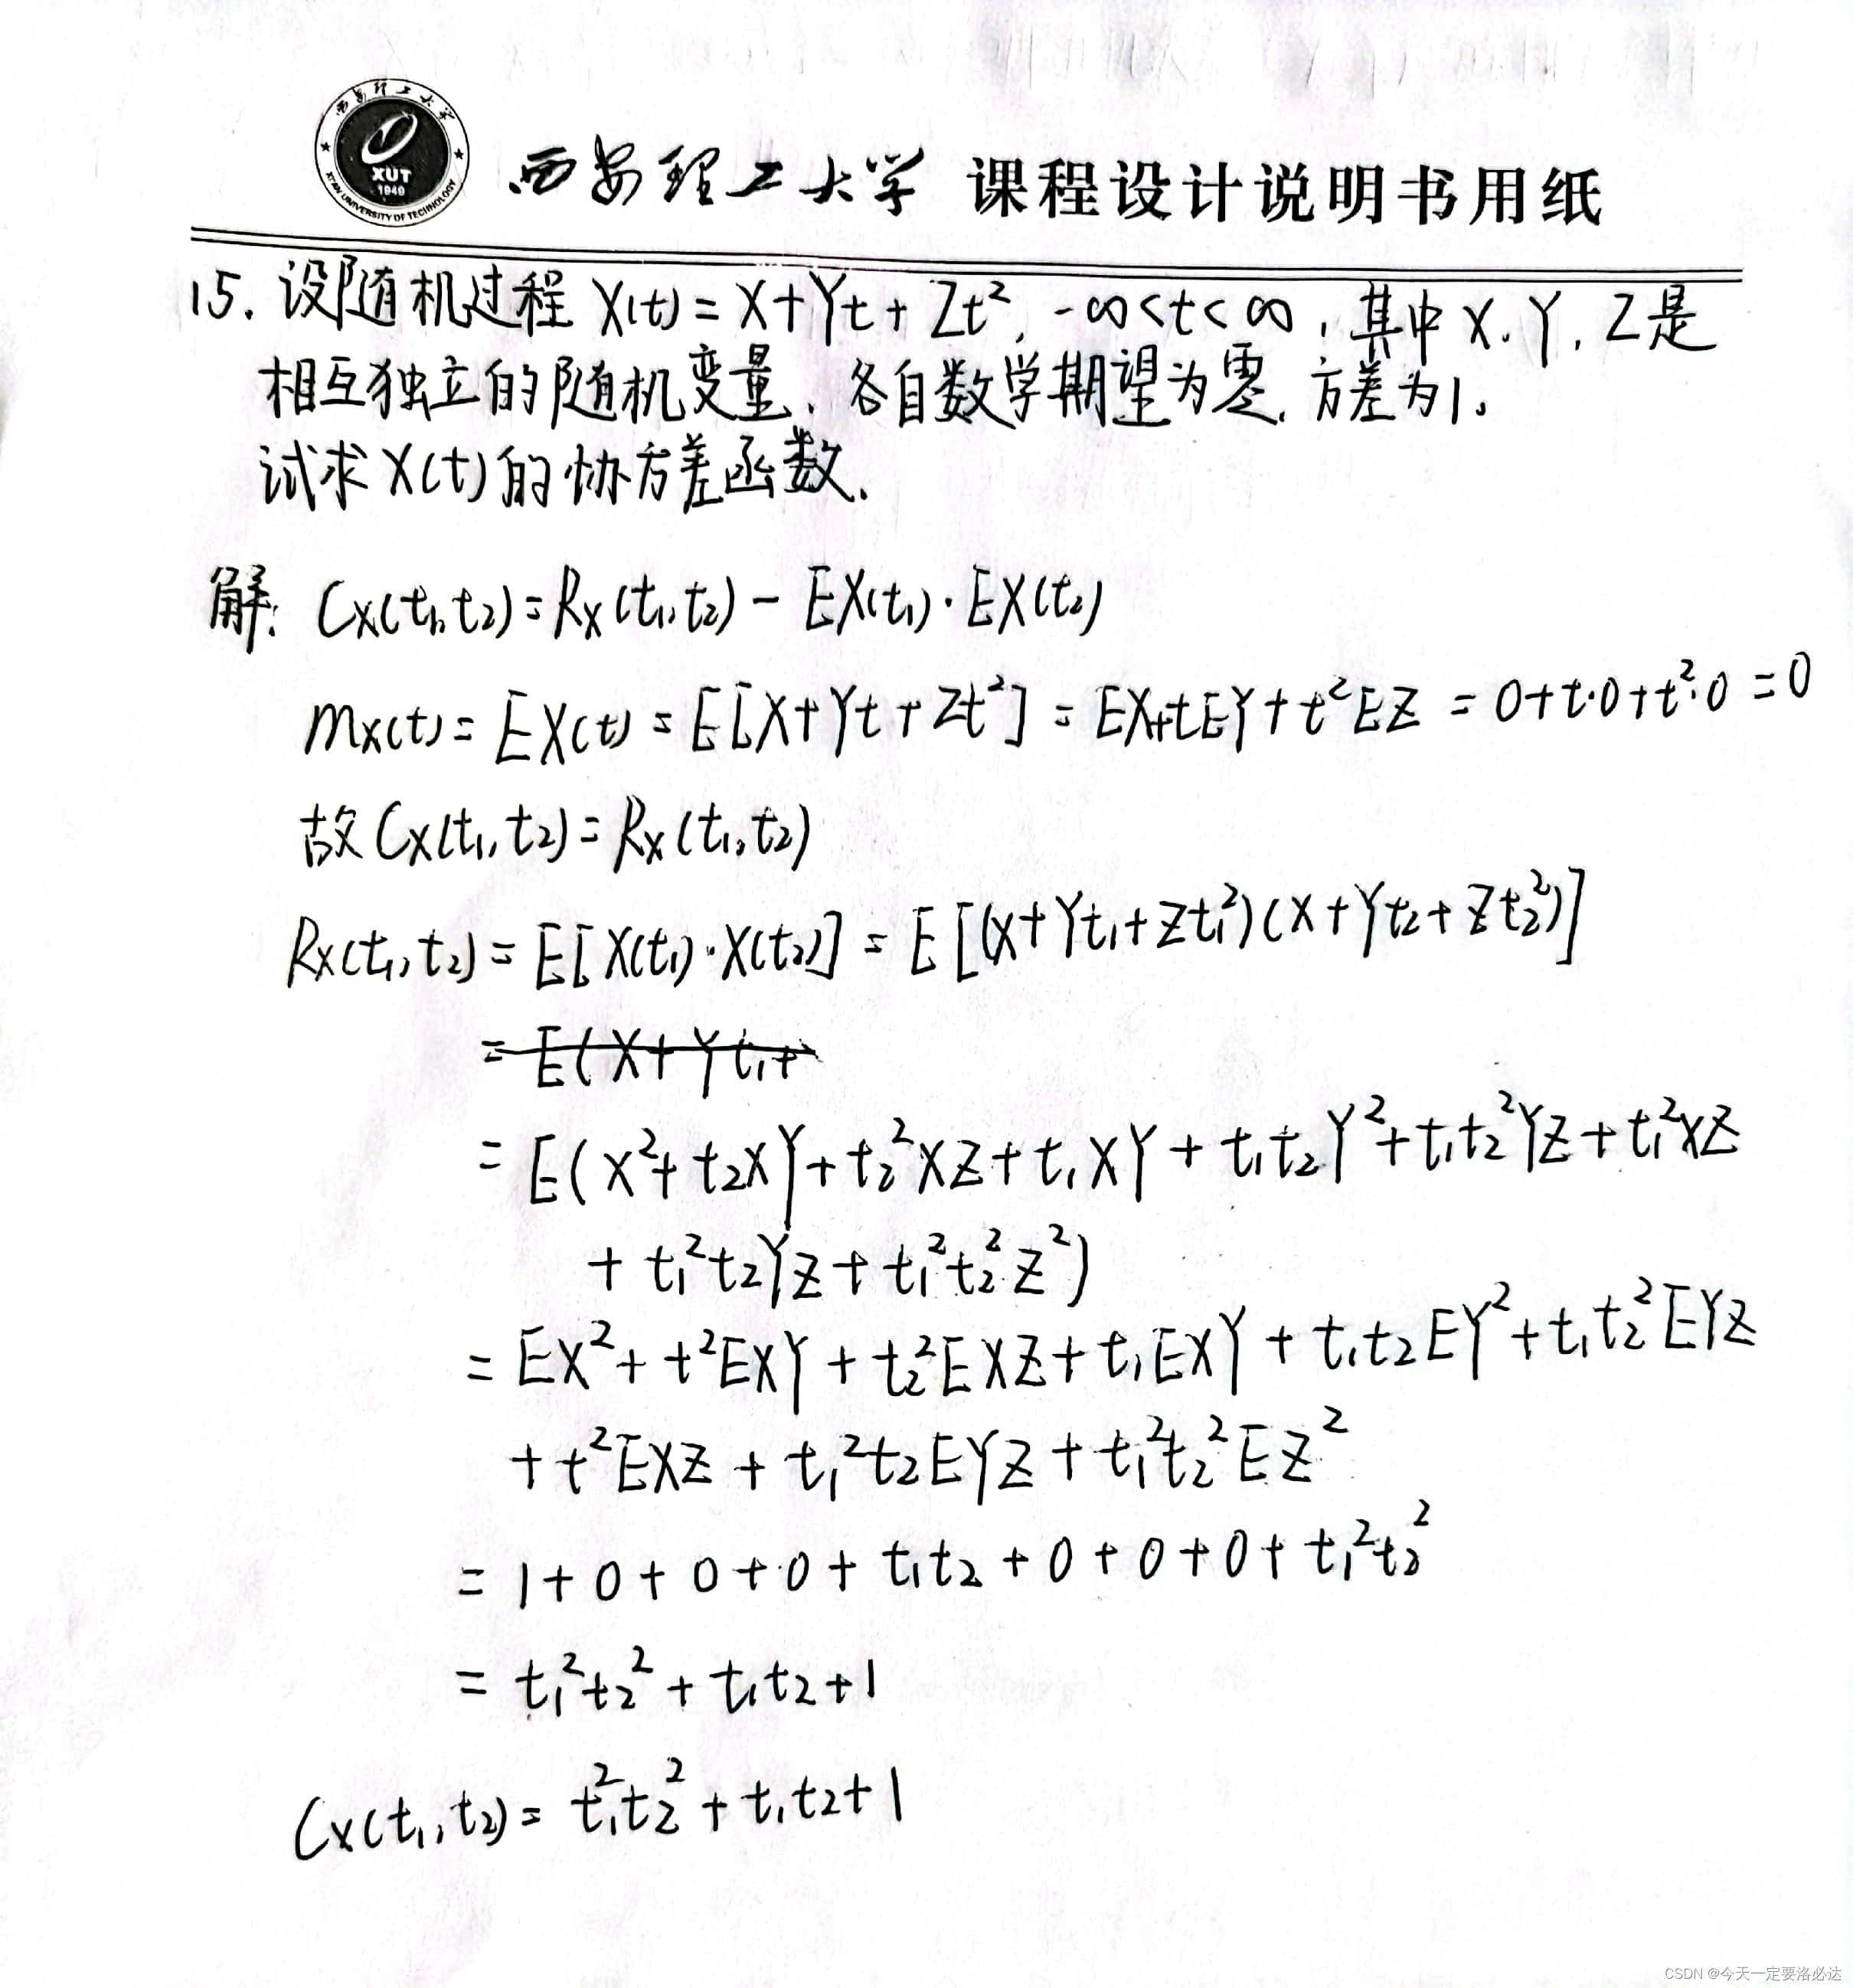 西安理工大学
XUT
1949
XI'AN UNIVERSITY OF TECHNOLOGY
西安理工大学 课程设计说明书用纸
15. 设随机过程 X(t)=X+Yt+Zt², -∞<t<∞, 其中 X、Y, Z是
相互独立的随机变量, 各自数学期望为零, 方差为1。
试求X(t)的协方差函数.
解: Cx(t₁,t₂)=Rx(t₁,t₂)-EX(t₁)·EX(t₂)
mx(t)=EX(t)=E[X+Yt+Zt²]=EX+tEY+t²EZ=0+t·0+t²·0=0
故Cx(t₁,t₂)=Rx(t₁,t₂)
Rx(t₁,t₂)=E[X(t₁)·X(t₂)]=E[(X+Yt₁+Zt₁²)(X+Yt₂+Zt₂²)]
=E(X+Yt₁+
=E(X²+t₂XY+t₂²XZ+t₁XY+t₁t₂Y²+t₁t₂²YZ+t₁²XZ
+t₁²t₂YZ+t₁²t₂²Z²)
=EX²+t²EXY+t₂²EXZ+t₁EXY+t₁t₂EY²+t₁t₂²EYZ
+t²EXZ+t₁²t₂EYZ+t₁²t₂²EZ²
=1+0+0+0+t₁t₂+0+0+0+t₁²t₂²
=t₁²t₂²+t₁t₂+1
Cx(t₁,t₂)=t₁²t₂²+t₁t₂+1
CSDN @今天一定要洛必达